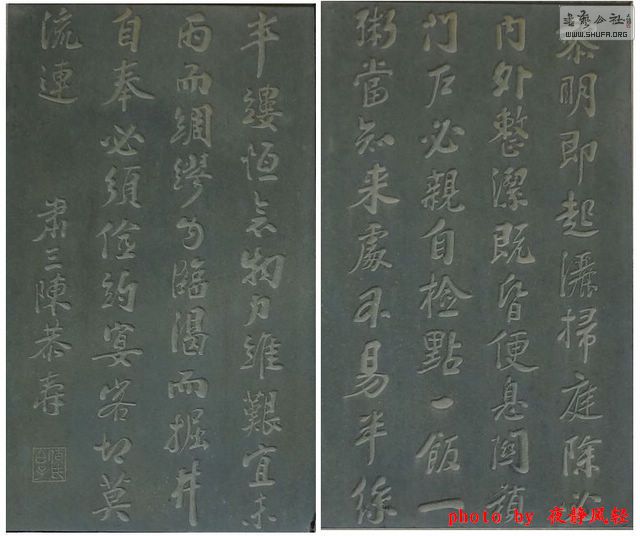 黎明即起灑掃庭除必
内外整潔既昏便息関鎖
門户必親自检點一飯一
粥當知来處不易半絲
半縷恒念物力維艱宜未
雨而綢繆勿臨渴而掘井
自奉必須儉約宴客切莫
流連
肅三陳恭壽
书艺公社
WWW.SHUFA.ORG
photo by 夜静风轻